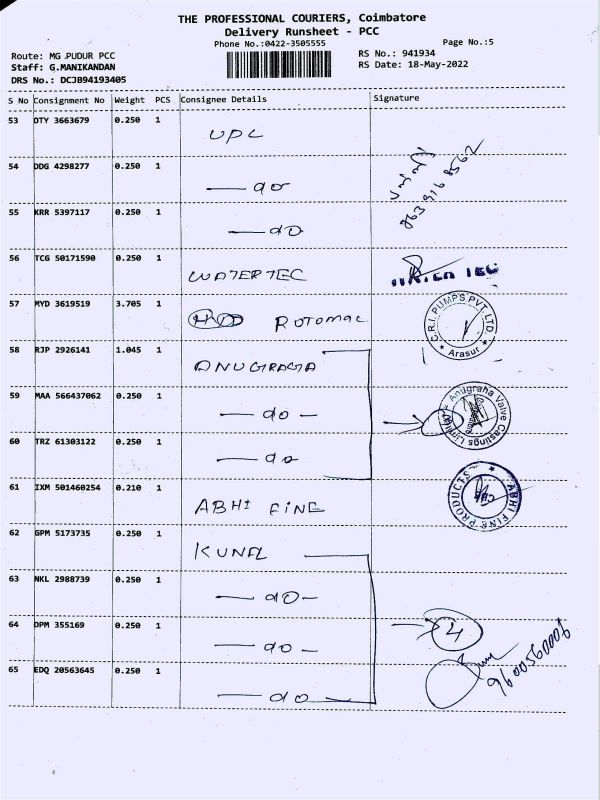 THE PROFESSIONAL COURIERS, Coimbatore
Delivery Runsheet - PCC
Phone No.:0422-3505555
Page No.:5
Route: MG.PUDUR PCC
RS No.: 941934
Staff: G.MANIKANDAN
RS Date: 18-May-2022
DRS No.: DCJB94193405
S No Consignment No Weight PCS Consignee Details Signature
53 DTY 3663679 0.250 1 UPL
54 DDG 4298277 0.250 1 — do
55 KRR 5397117 0.250 1 — do
56 TCG 50171590 0.250 1 WATERTEC
57 MYD 3619519 3.705 1 ROTOMAC
C.R.I. PUMPS PVT. LTD
* Arasur *
58 RJP 2926141 1.045 1 ANUGRAGA
59 MAA 566437062 0.250 1 — do —
Anugraha Valve Castings Limited
60 TRZ 61303122 0.250 1 — do
61 IXM 501460254 0.210 1 ABHI FINE
ABHI FINE PRODUCTS
62 GPM 5173735 0.250 1 KUNAL
63 NKL 2988739 0.250 1 — do —
64 DPM 355169 0.250 1 — do —
4
65 EDQ 20563645 0.250 1 — do —
9600560006